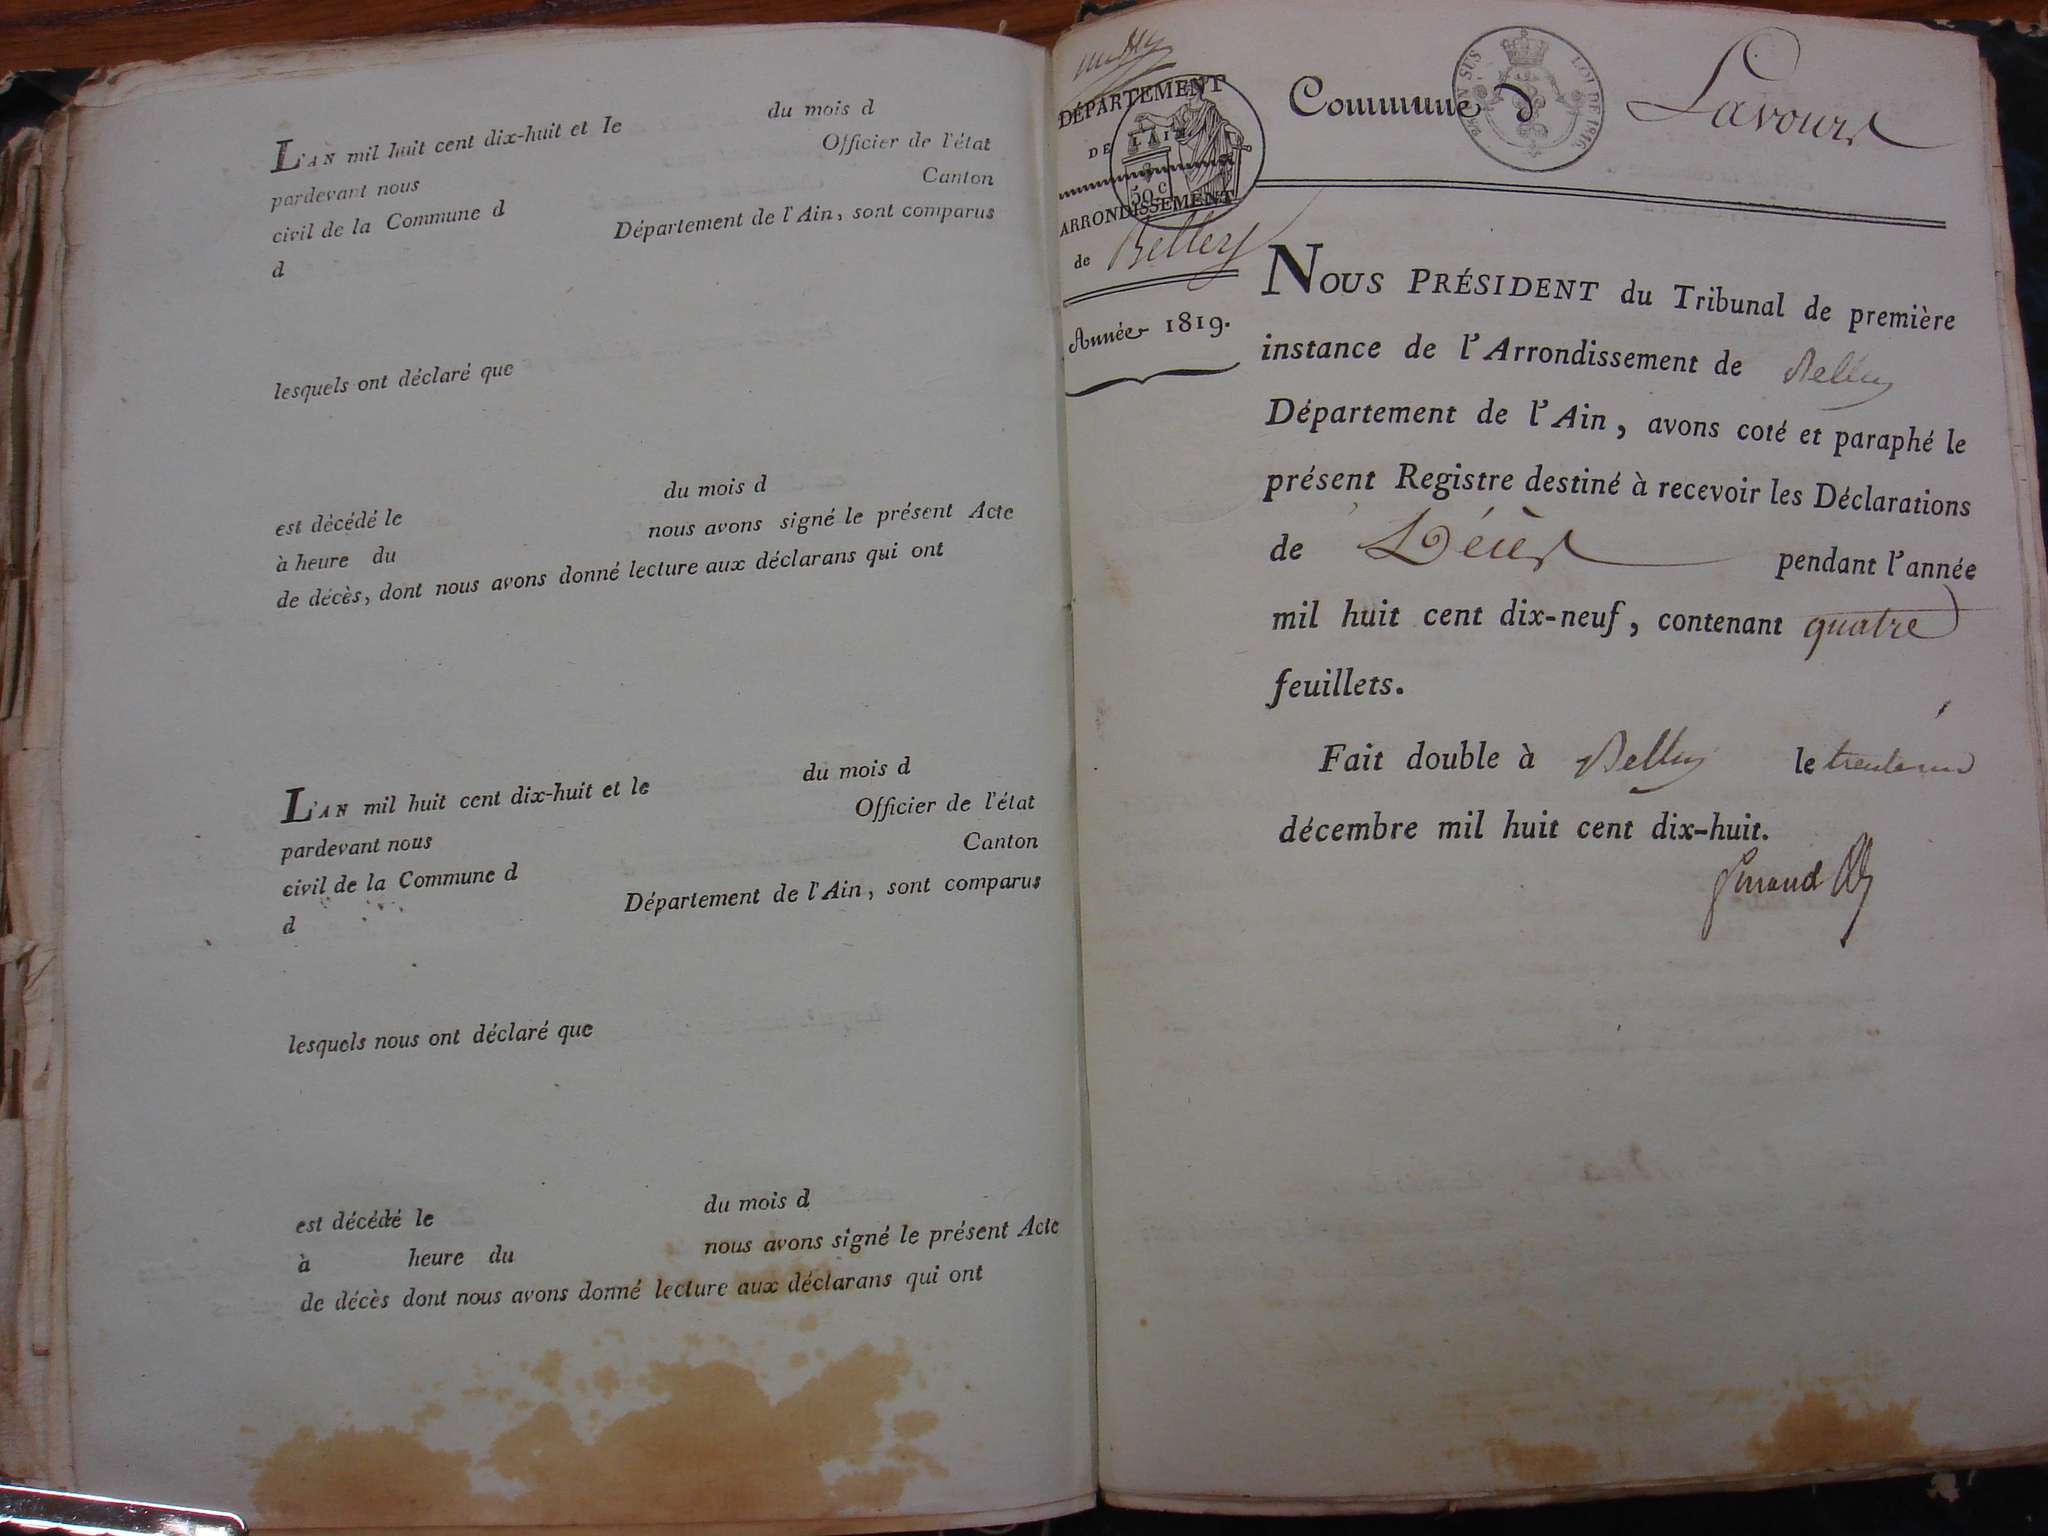 L'AN mil huit cent dix-huit et le du mois d
pardevant nous Officier de l'état
civil de la Commune d Canton
d Département de l'Ain, sont comparus
lesquels ont déclaré que
est décédé le du mois d
à heure du nous avons signé le présent Acte
de décès, dont nous avons donné lecture aux déclarans qui ont
L'AN mil huit cent dix-huit et le du mois d
pardevant nous Officier de l'état
civil de la Commune d Canton
d Département de l'Ain, sont comparus
lesquels nous ont déclaré que
est décédé le du mois d
à heure du nous avons signé le présent Acte
de décès dont nous avons donné lecture aux déclarans qui ont
DÉPARTEMENT
DE L'AIN
50 c
ARRONDISSEMENT
de Belley
Année 1819.
Commune d Lavours
LOI DE 1816
NOUS PRÉSIDENT du Tribunal de première
instance de l'Arrondissement de Belley
Département de l'Ain, avons coté et paraphé le
présent Registre destiné à recevoir les Déclarations
de Décès pendant l'année
mil huit cent dix-neuf, contenant quatre
feuillets.
Fait double à Belley le trente un
décembre mil huit cent dix-huit.